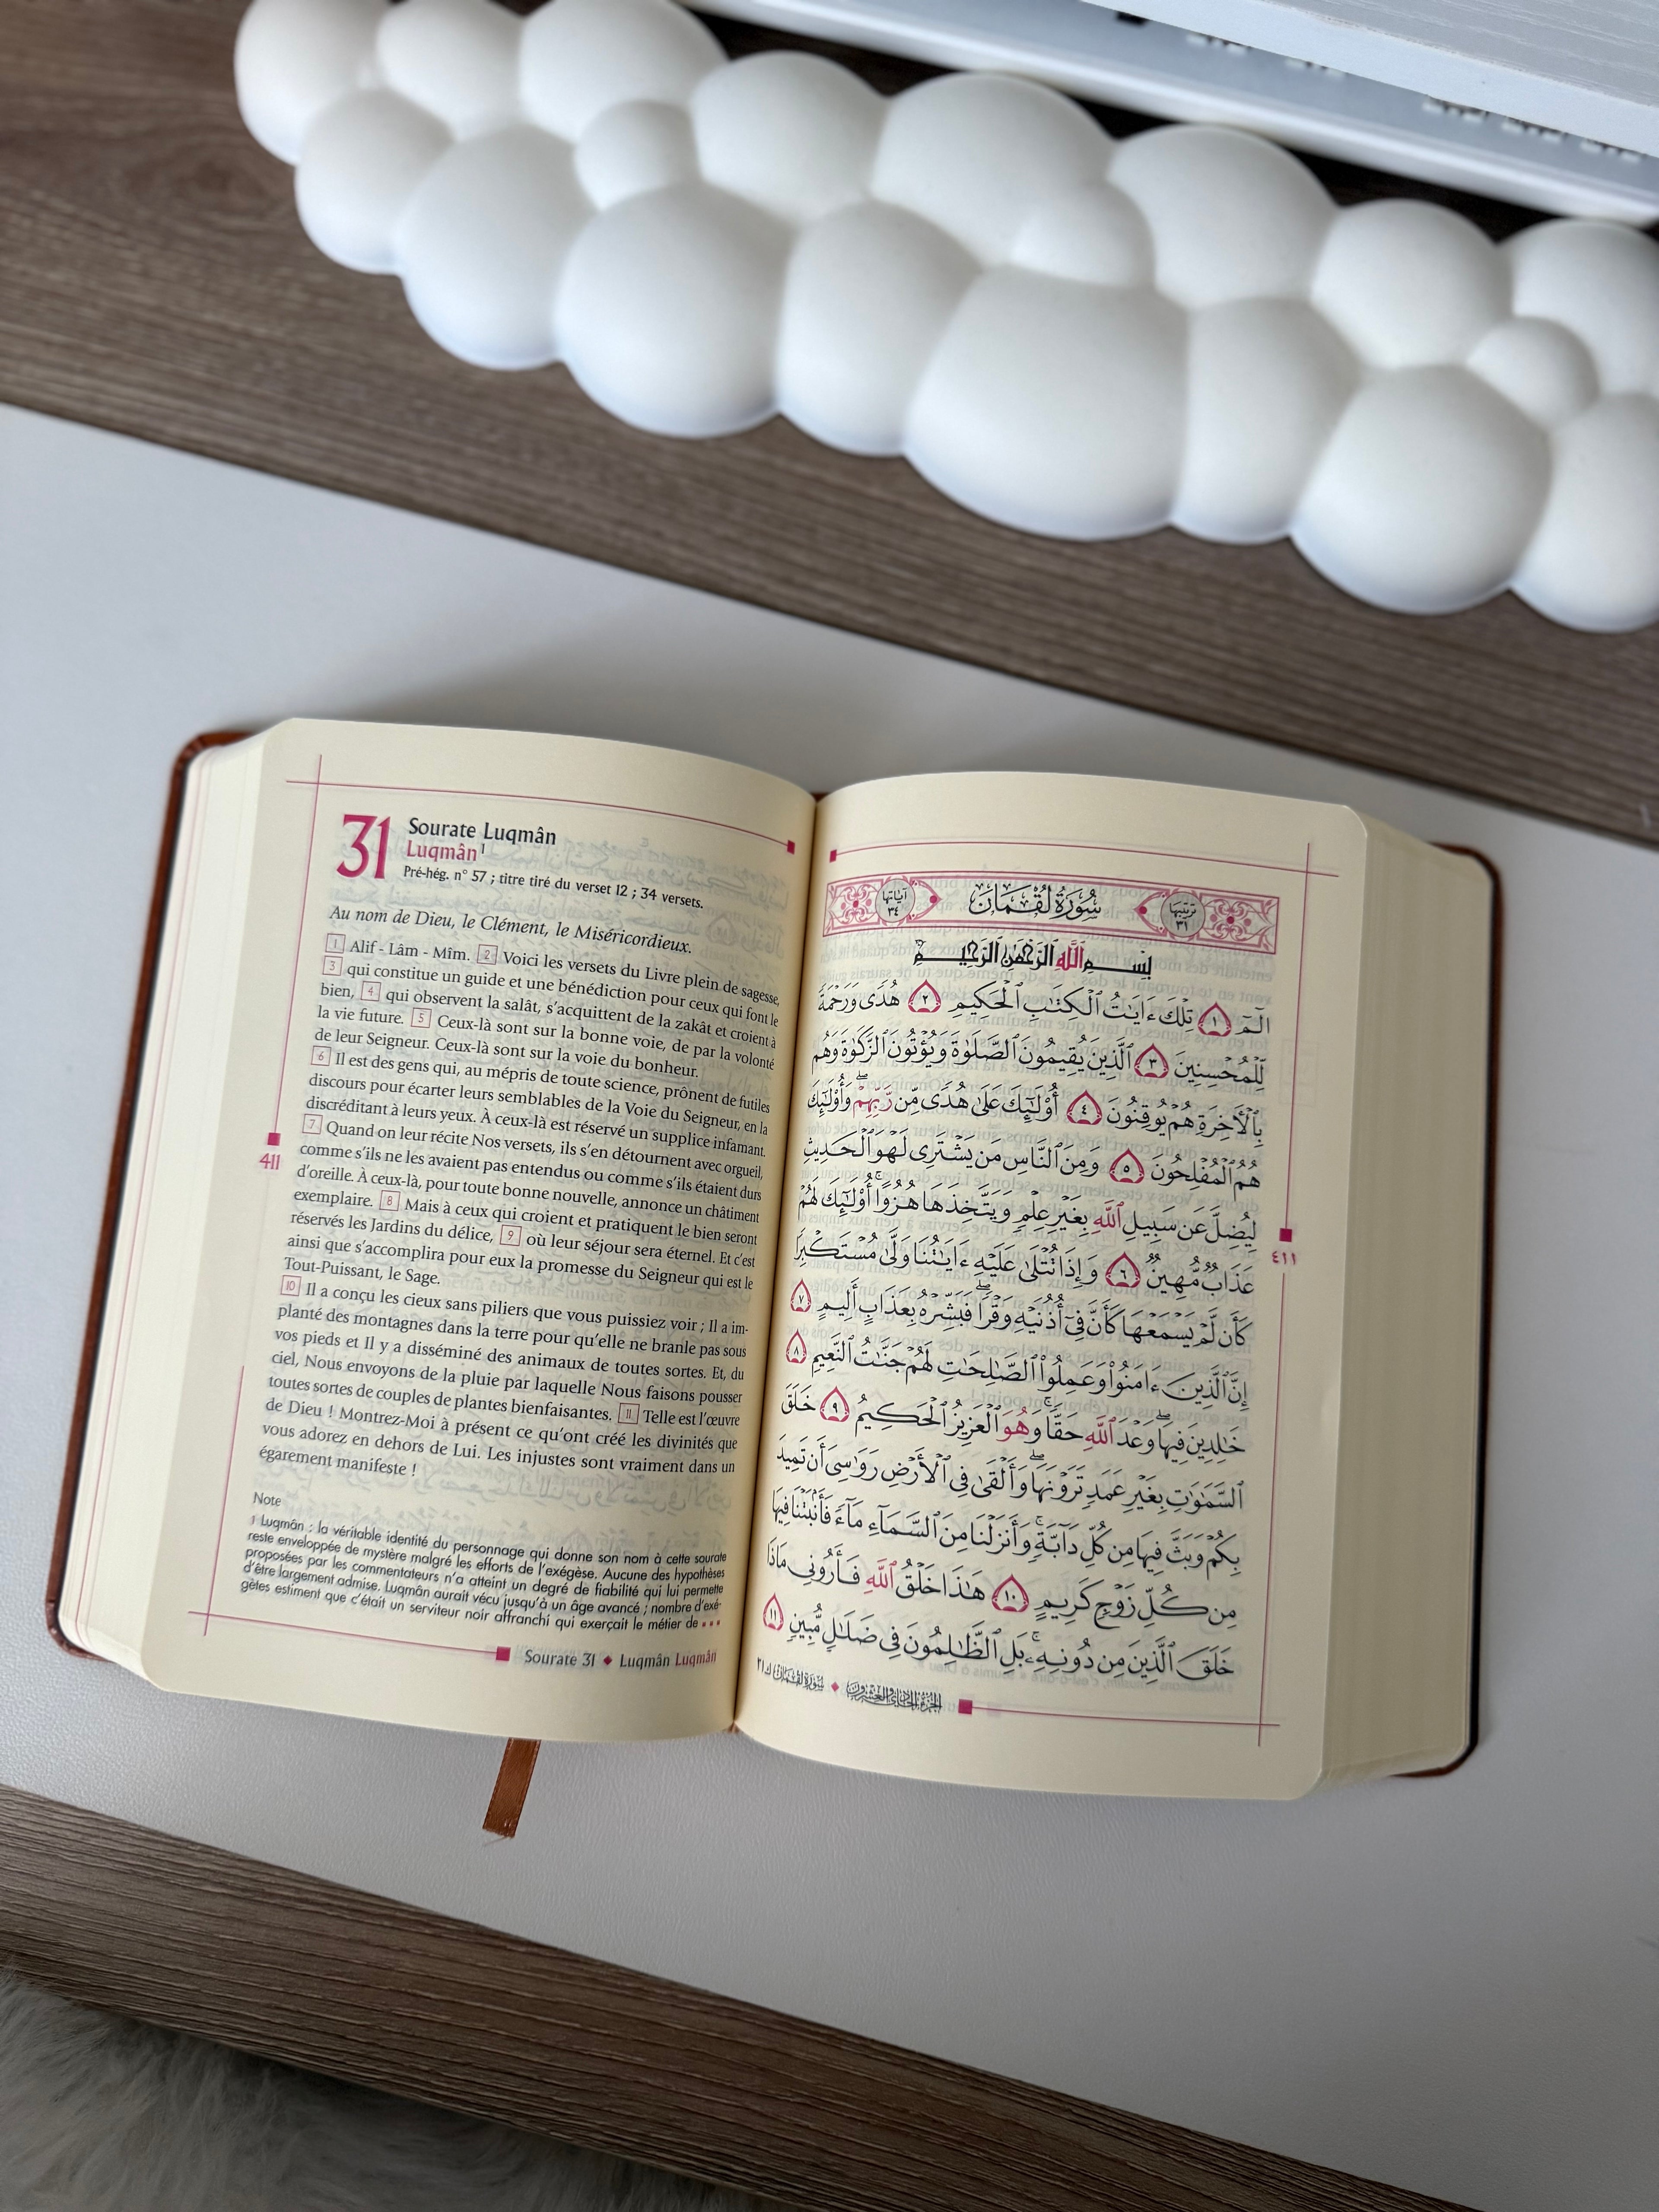 31
Sourate Luqmân
Luqmân¹
Pré-hég. n° 57 ; titre tiré du verset 12 ; 34 versets.
Au nom de Dieu, le Clément, le Miséricordieux.
1 Alif - Lâm - Mîm. 2 Voici les versets du Livre plein de sagesse,
3 qui constitue un guide et une bénédiction pour ceux qui font le
bien, 4 qui observent la salât, s’acquittent de la zakât et croient à
la vie future. 5 Ceux-là sont sur la bonne voie, de par la volonté
de leur Seigneur. Ceux-là sont sur la voie du bonheur.
6 Il est des gens qui, au mépris de toute science, prônent de futiles
discours pour écarter leurs semblables de la Voie du Seigneur, en la
discréditant à leurs yeux. À ceux-là est réservé un supplice infamant.
7 Quand on leur récite Nos versets, ils s’en détournent avec orgueil,
comme s’ils ne les avaient pas entendus ou comme s’ils étaient durs
d’oreille. À ceux-là, pour toute bonne nouvelle, annonce un châtiment
exemplaire. 8 Mais à ceux qui croient et pratiquent le bien seront
réservés les Jardins du délice, 9 où leur séjour sera éternel. Et c’est
ainsi que s’accomplira pour eux la promesse du Seigneur qui est le
Tout-Puissant, le Sage.
10 Il a conçu les cieux sans piliers que vous puissiez voir ; Il a im-
planté des montagnes dans la terre pour qu’elle ne branle pas sous
vos pieds et Il y a disséminé des animaux de toutes sortes. Et, du
ciel, Nous envoyons de la pluie par laquelle Nous faisons pousser
toutes sortes de couples de plantes bienfaisantes. 11 Telle est l’œuvre
de Dieu ! Montrez-Moi à présent ce qu’ont créé les divinités que
vous adorez en dehors de Lui. Les injustes sont vraiment dans un
égarement manifeste !
Note
1 Luqmân : la véritable identité du personnage qui donne son nom à cette sourate
reste enveloppée de mystère malgré les efforts de l’exégèse. Aucune des hypothèses
proposées par les commentateurs n’a atteint un degré de fiabilité qui lui permette
d’être largement admise. Luqmân aurait vécu jusqu’à un âge avancé ; nombre d’exé-
gètes estiment que c’était un serviteur noir affranchi qui exerçait le métier de
411
Sourate 31 ◆ Luqmân Luqmân
ترتيبها ٣١
سُورَةُ لُقْمَانَ
آياتها ٣٤
بِسْمِ ٱللَّهِ ٱلرَّحْمَٰنِ ٱلرَّحِيمِ
الٓمٓ ١ تِلْكَ ءَايَٰتُ ٱلْكِتَٰبِ ٱلْحَكِيمِ ٢ هُدًى وَرَحْمَةً
لِّلْمُحْسِنِينَ ٣ ٱلَّذِينَ يُقِيمُونَ ٱلصَّلَوٰةَ وَيُؤْتُونَ ٱلزَّكَوٰةَ وَهُم
بِٱلْأَخِرَةِ هُمْ يُوقِنُونَ ٤ أُوْلَٰٓئِكَ عَلَىٰ هُدًى مِّن رَّبِّهِمْ ۖ وَأُوْلَٰٓئِكَ
هُمُ ٱلْمُفْلِحُونَ ٥ وَمِنَ ٱلنَّاسِ مَن يَشْتَرِى لَهْوَ ٱلْحَدِيثِ
لِيُضِلَّ عَن سَبِيلِ ٱللَّهِ بِغَيْرِ عِلْمٍ وَيَتَّخِذَهَا هُزُوًا ۚ أُوْلَٰٓئِكَ لَهُمْ
عَذَابٌ مُّهِينٌ ٦ وَإِذَا تُتْلَىٰ عَلَيْهِ ءَايَٰتُنَا وَلَّىٰ مُسْتَكْبِرًا
كَأَن لَّمْ يَسْمَعْهَا كَأَنَّ فِىٓ أُذُنَيْهِ وَقْرًا ۖ فَبَشِّرْهُ بِعَذَابٍ أَلِيمٍ ٧
إِنَّ ٱلَّذِينَ ءَامَنُوا۟ وَعَمِلُوا۟ ٱلصَّٰلِحَٰتِ لَهُمْ جَنَّٰتُ ٱلنَّعِيمِ ٨
خَٰلِدِينَ فِيهَا ۖ وَعْدَ ٱللَّهِ حَقًّا ۚ وَهُوَ ٱلْعَزِيزُ ٱلْحَكِيمُ ٩ خَلَقَ
ٱلسَّمَٰوَٰتِ بِغَيْرِ عَمَدٍ تَرَوْنَهَا ۖ وَأَلْقَىٰ فِى ٱلْأَرْضِ رَوَٰسِىَ أَن تَمِيدَ
بِكُمْ وَبَثَّ فِيهَا مِن كُلِّ دَآبَّةٍ ۚ وَأَنزَلْنَا مِنَ ٱلسَّمَآءِ مَآءً فَأَنۢبَتْنَا فِيهَا
مِن كُلِّ زَوْجٍ كَرِيمٍ ١٠ هَٰذَا خَلْقُ ٱللَّهِ فَأَرُونِى مَاذَا
خَلَقَ ٱلَّذِينَ مِن دُونِهِۦ ۚ بَلِ ٱلظَّٰلِمُونَ فِى ضَلَٰلٍ مُّبِينٍ ١١
٤١١
الجزء الحادي والعشرون ◆ سورة لقمان